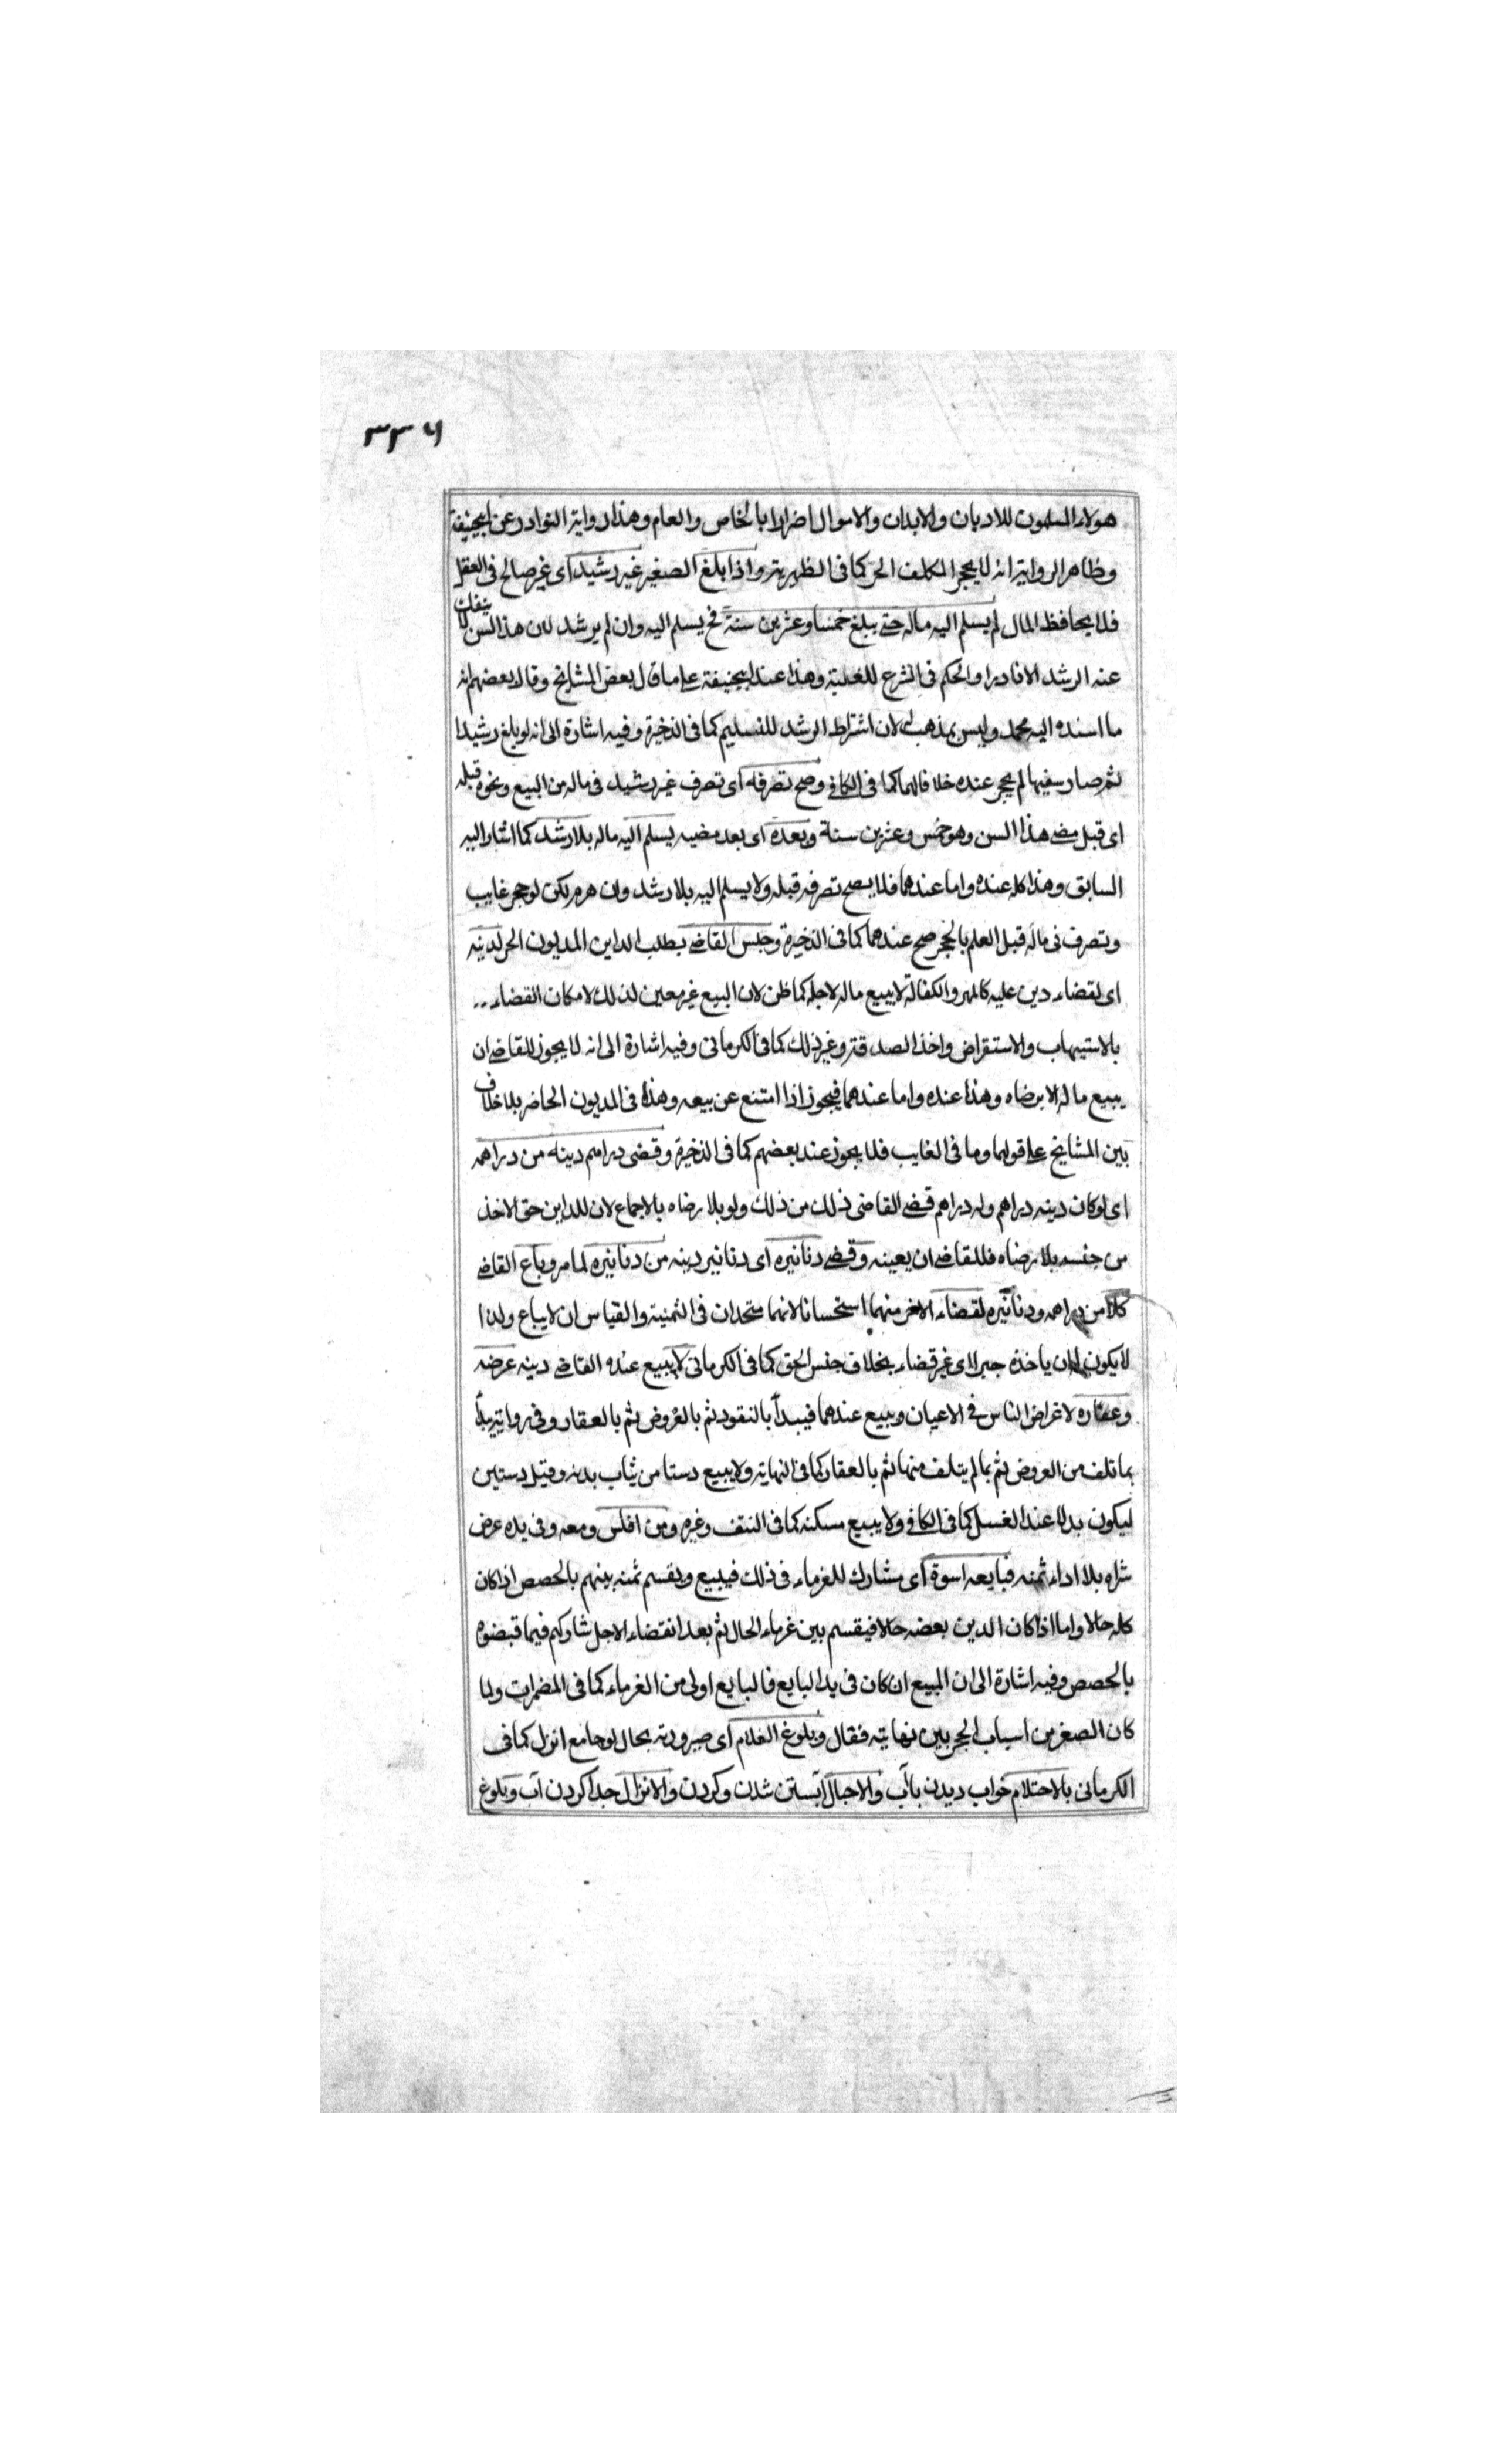 ٣٣٦
هولاء المسلمون للاديان والابدان والاموال اضرارا بالخاص والعام وهذا رواية النوادر عن ابيحنيفة
وظاهر الرواية انه لا يحجر المكلف الحر كما في الظهيرية واذا بلغ الصغير غير رشيد اى غير صالح في العقل
فلا يحافظ المال لم يسلم اليه ماله حتى يبلغ خمسا وعشرين سنة فح يسلم اليه وان لم يرشد لان هذا السن لا ينفك
عنه الرشد الا نادرا والحكم في الشرع للغلبة وهذا عند ابيحنيفة على ما قال بعض المشايخ وقال بعضهم انه
ما اسنده اليه محمد وليس بمذهب له لان اشتراط الرشد للتسليم كما في الذخيرة وفيه اشارة الى انه لو بلغ رشيدا
ثم صار سفيها لم يحجر عنده خلافا لهما كما في الكافي وصح تصرفه اى تصرف غير رشيد في ماله من البيع ونحوه قبله
اى قبل مضى هذا السن وهو خمس وعشرين سنة وبعده اى بعد مضيه يسلم اليه ماله بلا رشد كما اشار اليه
السابق وهذا كله عنده واما عندهما فلا يصح تصرفه قبله ولا يسلم اليه بلا رشد وان هرم لكن لو حجر غايب
وتصرف في ماله قبل العلم بالحجر صح عندهما كما في الذخيرة وحبس القاضي بطلب الداين المديون الحر لدينه
اى لقضاء دين عليه كالمهر والكفالة لا يبيع ماله لاجله كما ظن لان البيع غير معين لذلك لامكان القضاء ..
بالاستيهاب والاستقراض واخذ الصدقة وغير ذلك كما في الكرماني وفيه اشارة الى انه لا يجوز للقاضي ان
يبيع ماله الا برضاه وهذا عنده واما عندهما فيجوز اذا امتنع عن بيعه وهذا في المديون الحاضر بلا خلاف
بين المشايخ على قولهما وما في الغايب فلا يجوز عند بعضهم كما في الذخيرة وقضى دراهم دينه من دراهمه
اى لو كان دينه دراهم وله دراهم قضى القاضي ذلك من ذلك ولو بلا رضاه بالاجماع لان للداين حق الاخذ
من جنسه بلا رضاه فللقاضي ان يعينه وقضى دنانيره اى دنانير دينه من دنانيره لما مر وباع القاضي
كلا من دراهمه ودنانيره لقضاء الاخر منهما استحسانا لانهما متحدان في الثمنية والقياس ان لا يباع ولذا
لا يكون له ان ياخذه جبرا اى غير قضاء بخلاف جنس الحق كما في الكرماني لا يبيع عنده القاضي دينه عرضه
وعقاره لاغراض الناس في الاعيان ويبيع عندهما فيبدأ بالنقود ثم بالعروض ثم بالعقار وفي رواية يبدأ
بما تلف من العروض ثم بما لم يتلف منها ثم بالعقار كما في النهاية ولا يبيع دستا من ثياب بدنه وقيل دستين
ليكون بدلا عند الغسل كما في الكافي ولا يبيع مسكنه كما في النتف وغيره ومن افلس ومعه وفي يده عرض
شراه بلا اداء ثمنه فبايعه اسوة اى مشارك للغرماء في ذلك فيبيع ويقسم ثمنه بينهم بالحصص اذا كان
كله حالا واما اذا كان الدين بعضه حالا فيقسم بين غرماء الحال ثم بعد انقضاء الاجل شاركهم فيما قبضوه
بالحصص وفيه اشارة الى ان المبيع ان كان في يد البايع فالبايع اولى من الغرماء كما في المضمرات ولما
كان الصغر من اسباب الحجر بين نهايته فقال وبلوغ الغلام اى صيرورته بحال لو جامع انزل كما في
الكرماني بالاحتلام خواب ديدن باآب والاحبال آبستن شدن وكردن والانزال جدا كردن آب وبلوغ